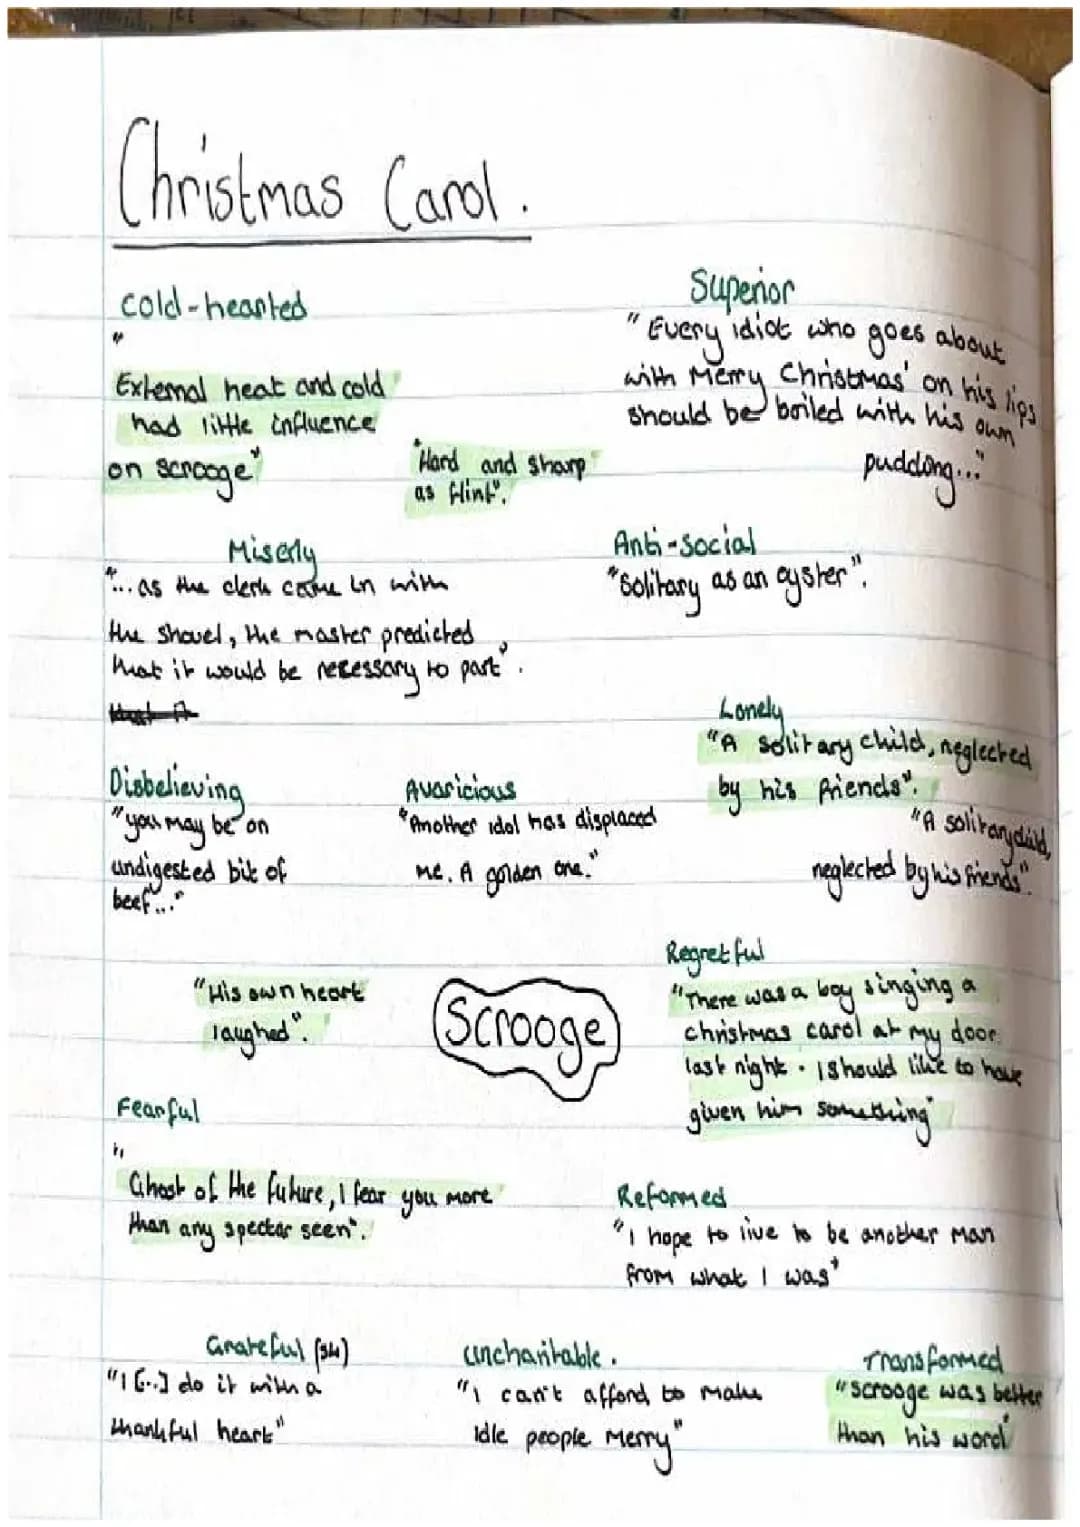 Christmas Carol.
cold-hearted
"
External heat and cold
had little influence
on scrooge"
"Hard and sharp
as flint".
Superior
"Every idiot who goes about
with Merry Christmas' on his lips
should be boiled with his own
pudding..."
Miserly
"... as the clerk came in with
the shovel, the master predicted
that it would be necessary to part".
Anti-social
"Solitary as an oyster".
Lonely
"A solitary child, neglected
by his friends".
"A solitary child,
neglected by his friends".
Disbelieving
"you may be an
undigested bit of
beef..."
Avaricious
"Another idol has displaced
me. A golden one."
"His own heart
laughed".
Scrooge
Regretful
"There was a boy singing a
christmas carol at my door
last night. I should like to have
given him something"
Fearful
"
Ghost of the future, I fear you more
than any spectar seen".
Reformed
"I hope to live to be another man
from what I was"
Grateful (S4)
"I [...] do it with a
thankful heart"
uncharitable.
"I can't afford to make
idle people merry"
Transformed
"Scrooge was better
than his word"